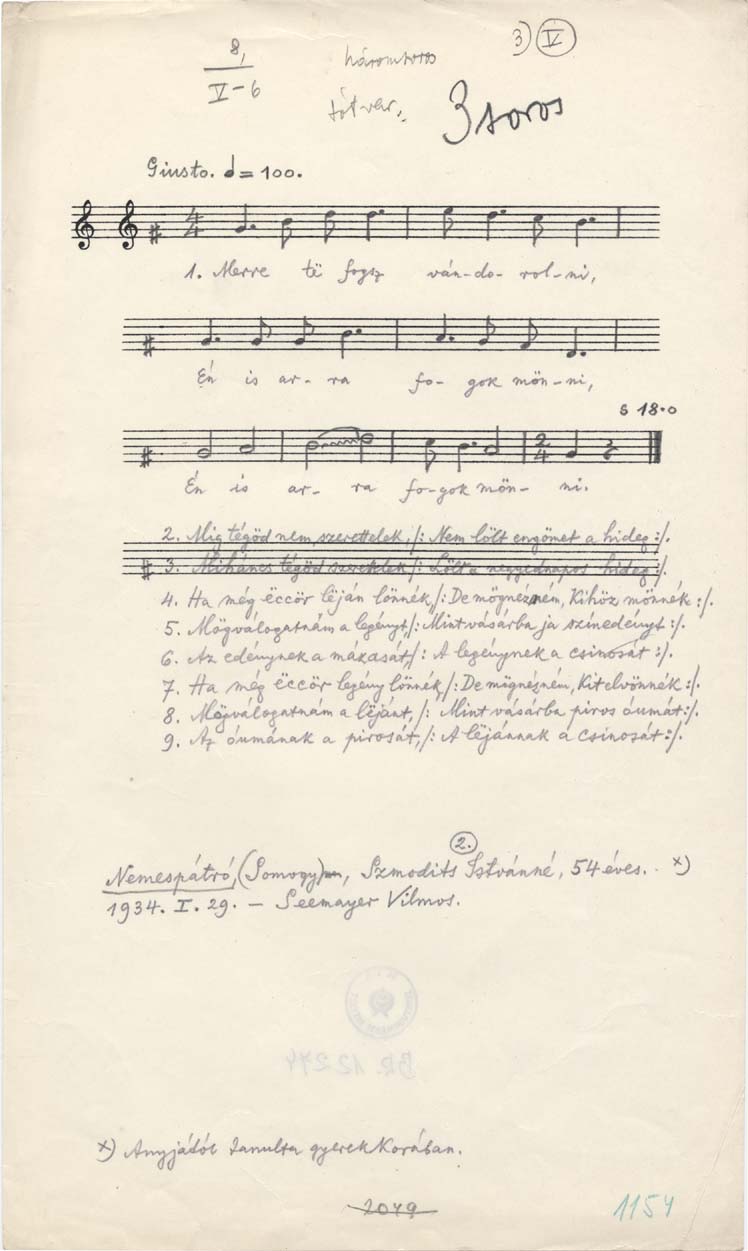 3) V
8,
V-6
háromsoros
tótvár.
3 soros
Giusto. = 100.
4
4
1. Merre të fogsz ván-do-rol-ni,
Én is ar-ra fo-gok mön-ni,
s 18.0
2
4
Én is ar-ra fo-gok mön-ni.
2. Mig tégöd nem szerettelek, /: Nem lölt engömet a hideg :/.
3. Miháncs tégöd szeretlek /: Lölt a negyednapos hideg :/.
4. Ha még ëccör lëján lönnék, /: De mögnézném, Kihöz mönnék :/.
5. Mögválogatnám a legényt, /: Mint vásárba ja szinedényt :/.
6. Az edénynek a mázasát, /: A legénynek a csinosát :/.
7. Ha még ëccör legény lönnék, /: De mögnézném, Kit elvönnék :/.
8. Mögválogatnám a lëjánt, /: Mint vásárba piros óumát :/.
9. Az óumának a pirosát, /: A lëjánnak a csinosát :/.
2.
Nemespátró, (Somogy), Szmodits Istvánné, 54 éves. x)
1934. I. 29. – Seemayer Vilmos.
BR. 12274
x) Anyjától tanulta gyerekkorában.
2049
1154